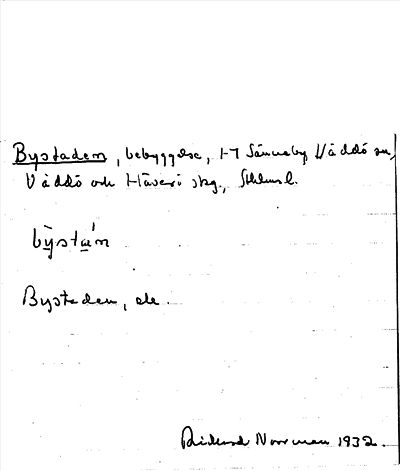 Bystaden, bebyggelse, HT Sánneby Väddö sn,
Väddö och Häverö skg., Sthlmsl.
by̆stán
Bystaden, ek.
Rickard Norrman 1932.